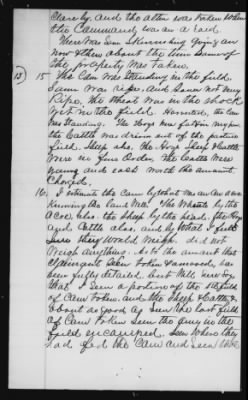 Clare by. And the other was taken when
the Command was on a raid.
There was some Skirmishing going on
now & then about the time some of
the property was Taken.
15 The Corn was Standing in the field.
Some was ripe. And some not very
Ripe. the wheat was in the shock
yet in the field. Harvested, the Corn
was Standing. The Hogs were fat in
the Cattle was driven out of the pasture
field. Sheep also. the Hogs Sheep & Cattle
were in fine Order, the Cattle were
young and each worth the amount
Charged.
16. I estimate the Corn by what was on an acre
Knowing the land Well. The Wheat by the
Acre also. the Sheep by the head. the Hogs
And Cattle also. and by What I felt
Sure they Would Weigh. did not
Weigh anything. As to the amount that
Claimant seen taken & removed, has
been fully detailed. but Will now say
that I seen a portion of the 1st field
of Corn taken. and the Sheep & Cattle &
about as good as seen the last field
of Corn taken seen the Army in the
field encamped. Seen Where they
had fed the Corn and seen